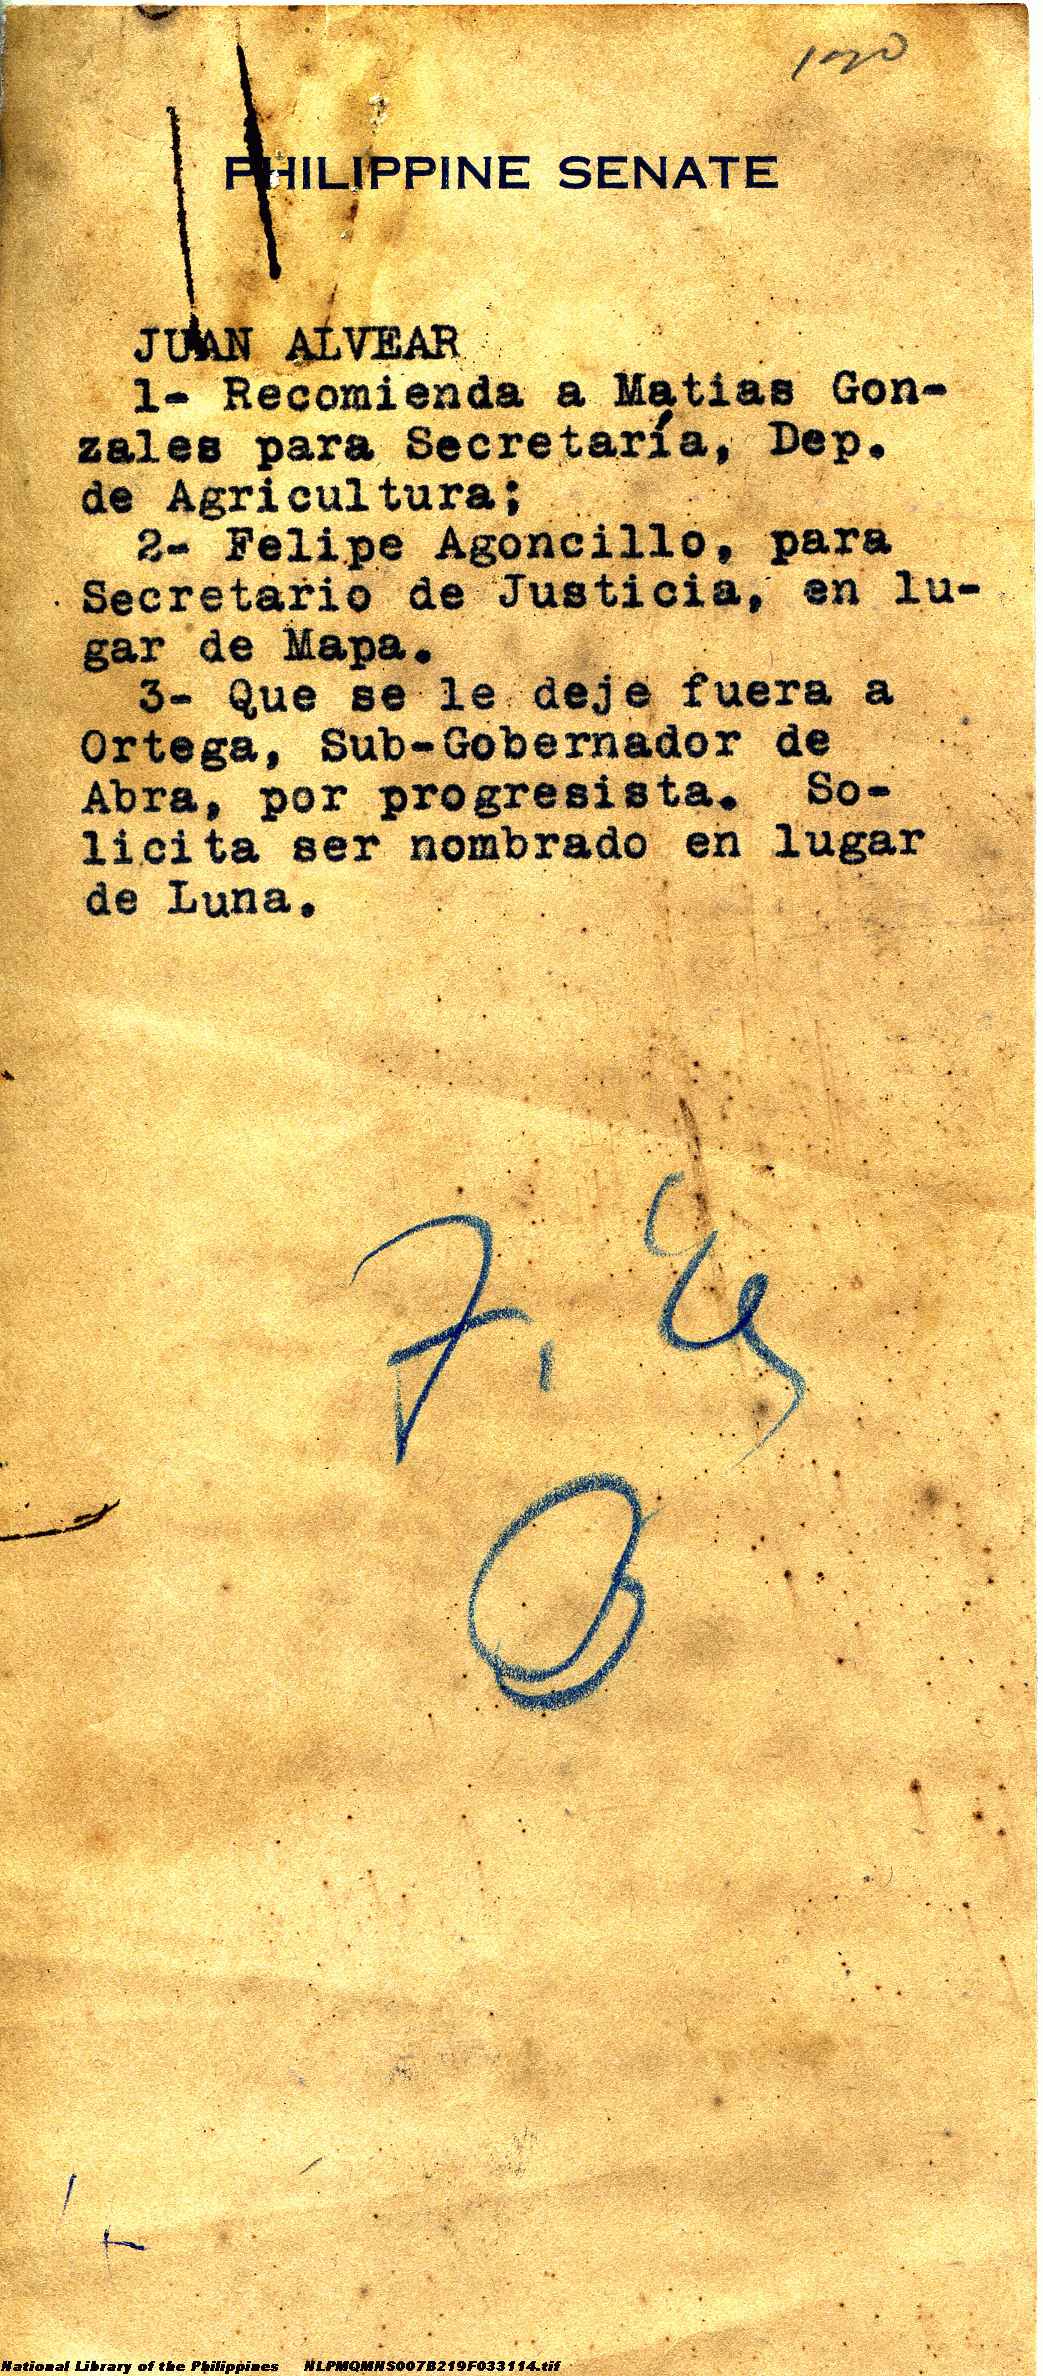 PHILIPPINE SENATE
JUAN ALVEAR
1- Recomienda a Matias Gon-
zales para Secretaría, Dep.
de Agricultura;
2- Felipe Agoncillo, para
Secretario de Justicia, en lu-
gar de Mapa.
3- Que se le deje fuera a
Ortega, Sub-Gobernador de
Abra, por progresista. So-
licita ser nombrado en lugar
de Luna.
National Library of the Philippines NLPMQMNS007B219F033114.tif